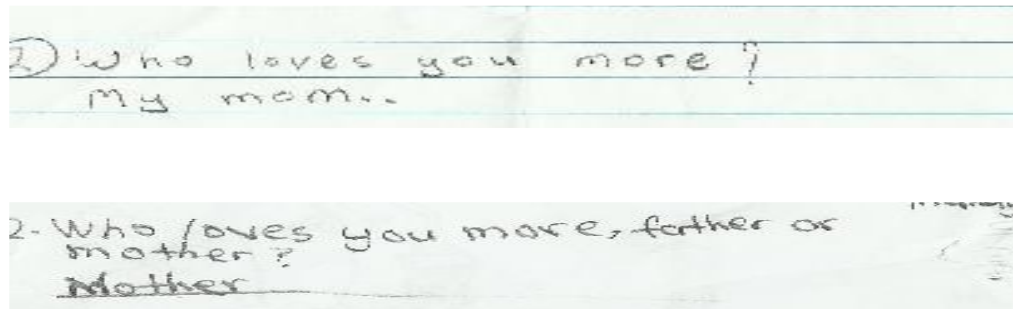 2) Who loves you more?
My mom..
2- Who loves you more, farther or
mother?
Mother